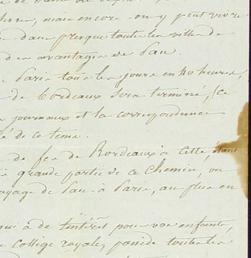 mais encore on y peut vivre
dans presque toutes les villes de
des avantages de Pau.
Paris tous les jours en 40 heures,
de Bordeaux sera terminé, ce
journaux et la correspondance
de ce tems.
de fer de Bordeaux à Cette, dont
grande partie de ce Chemin, on
voyage de Pau à Paris, au plus en
a de intérêt pour vos enfants,
Collège royale, possède toutes les